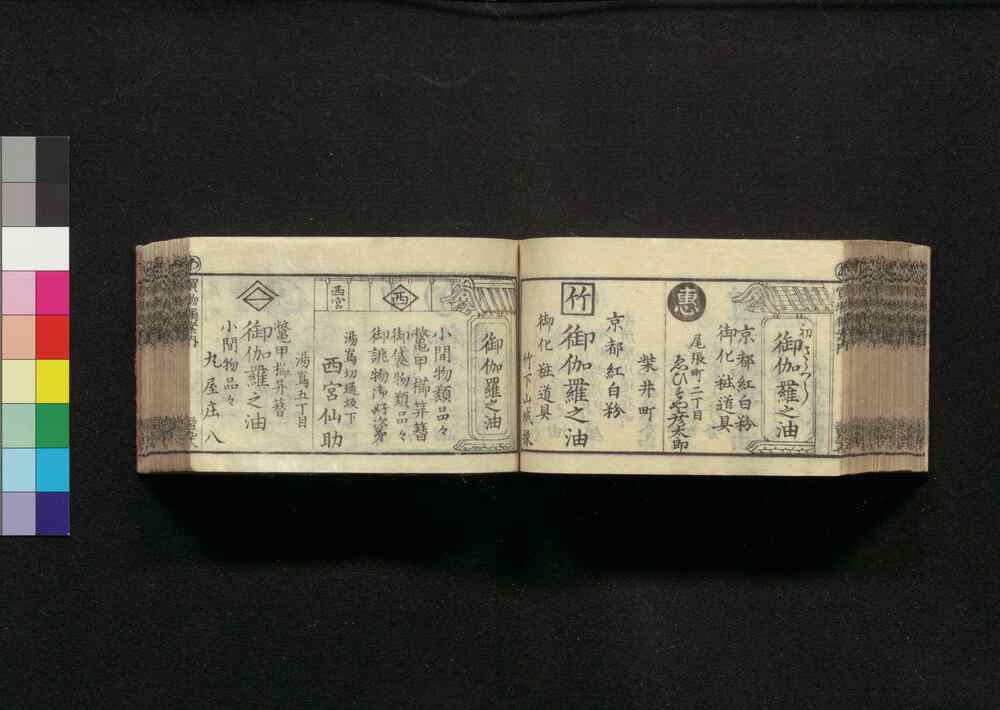 初さくつらし
御伽羅之油
京都紅白粉
御化粧道具
恵
尾張町二丁目
ゑびすや彦太郎
柴井町
京都紅白粉
竹
御伽羅之油
御化粧道具
竹下山城掾
御伽羅之油
小間物類品々
鼈甲櫛笄簪
御袋物類品々
御誂物御好次第
西
湯嶌切通坂下
西宮仙助
西宮
湯嶌五丁目
鼈甲櫛笄簪
御伽羅之油
小間物品々
丸屋庄八